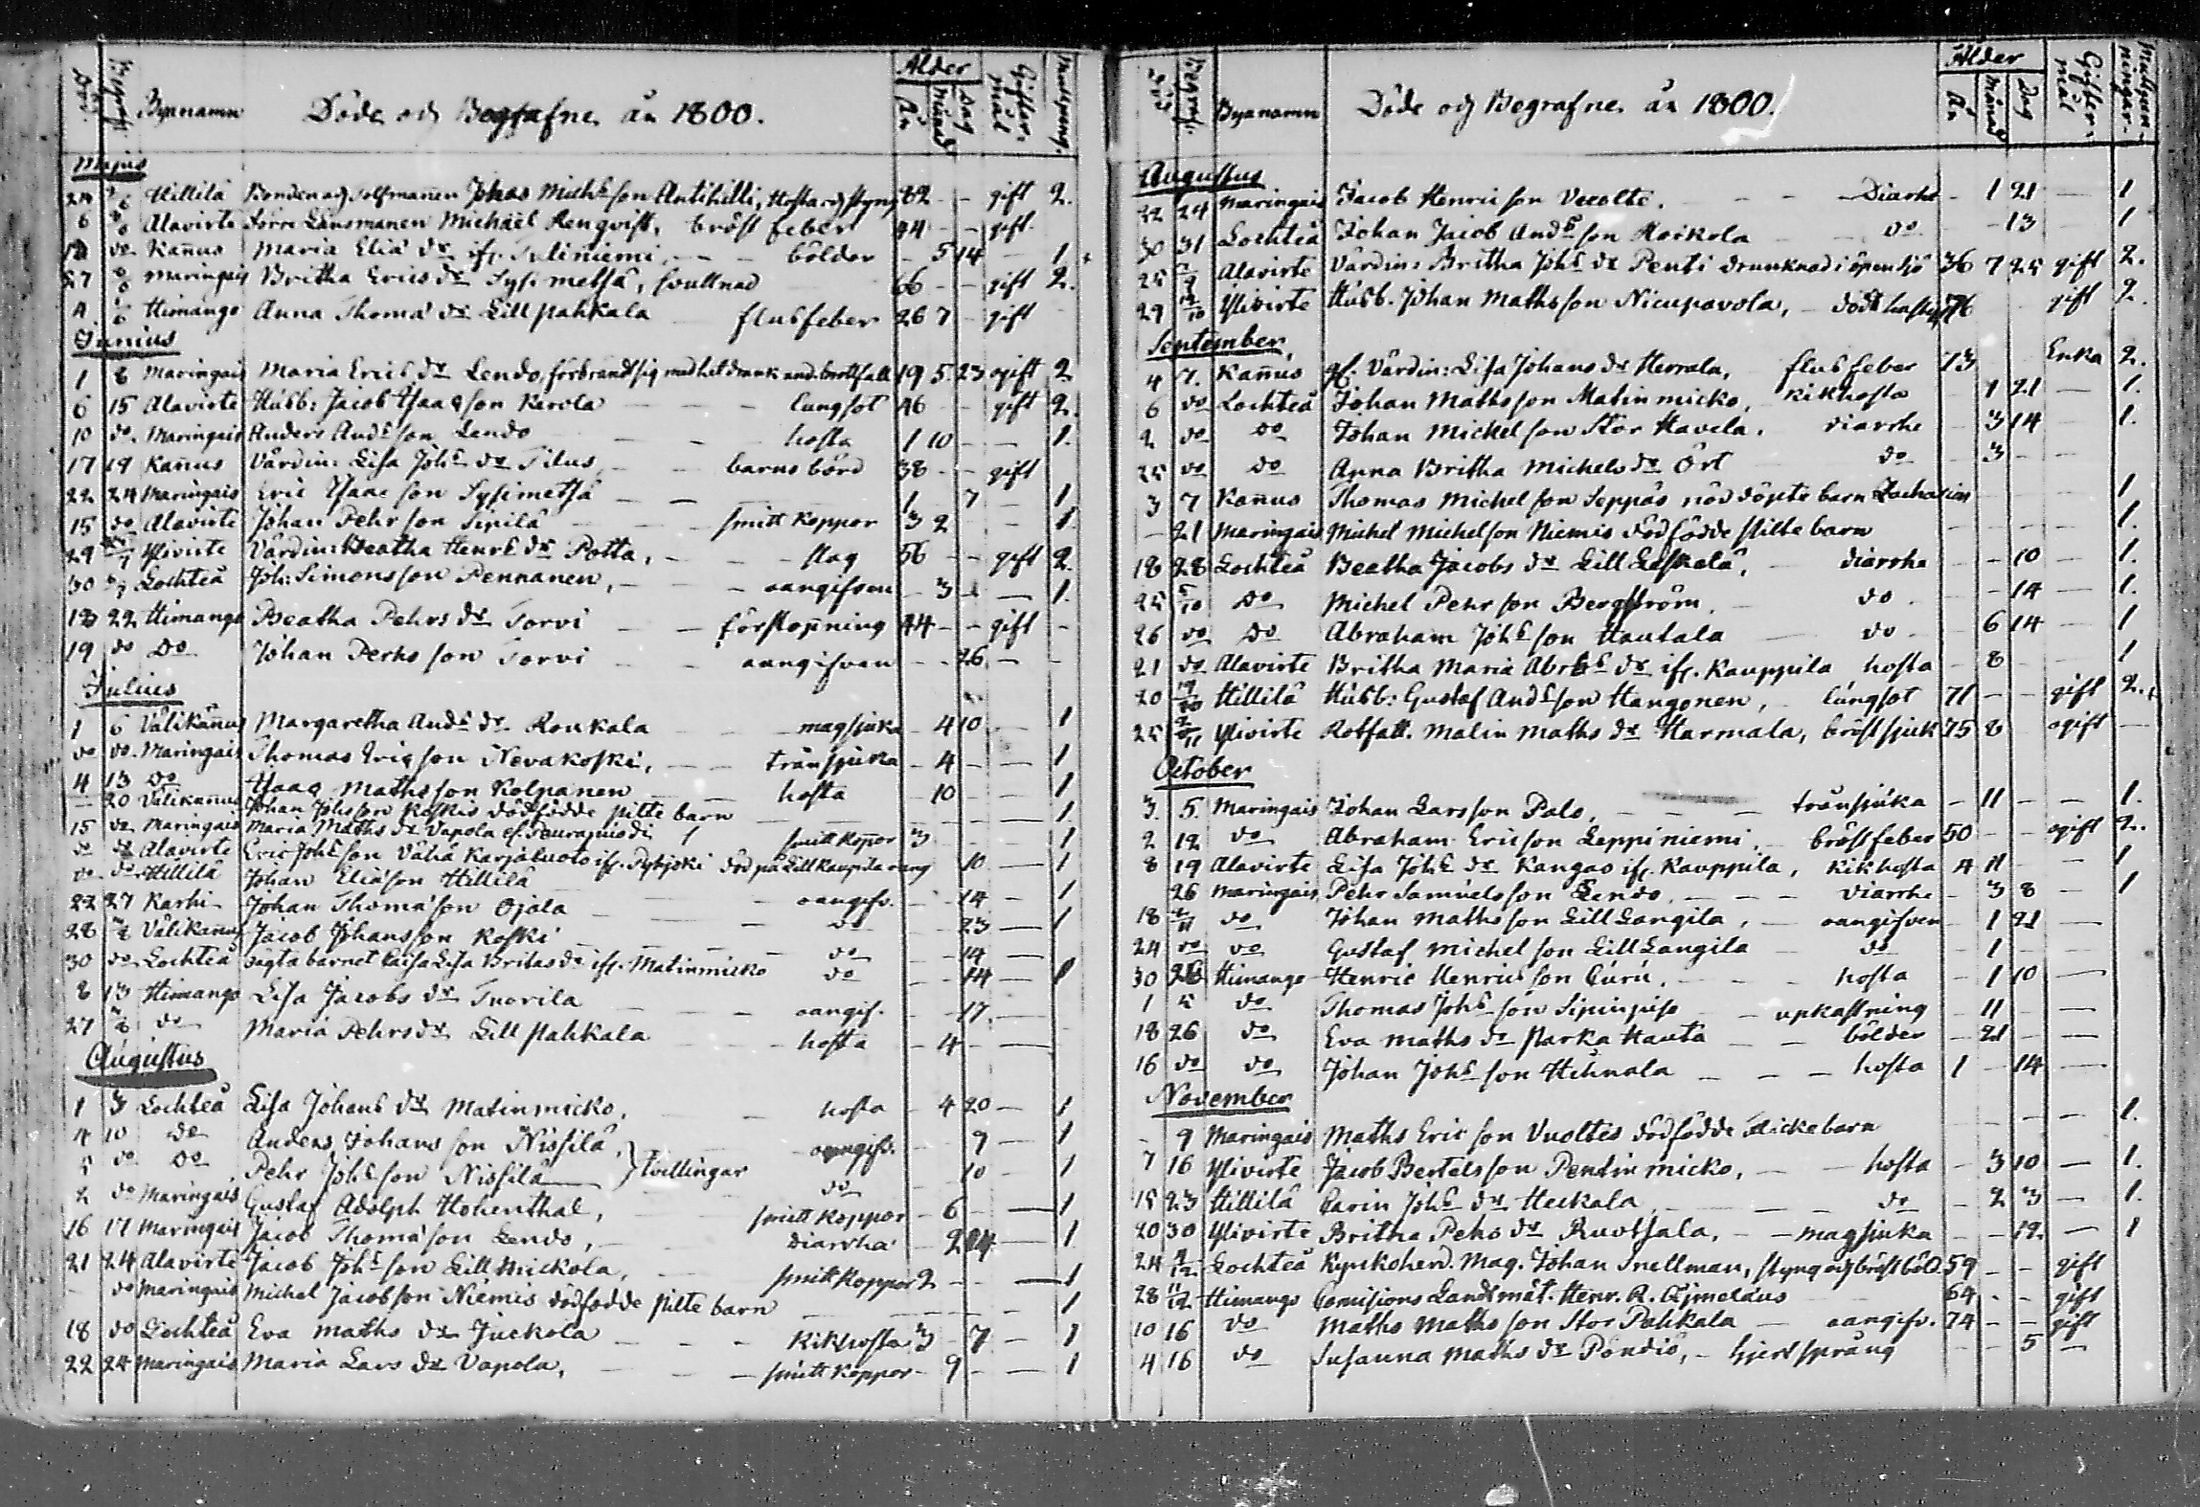 Död Begrafn. Byanamn Döde och Begrafne år 1800. Ålder År Månad Dag Giftermål
Majus
24 Hillilä Bonden och Solfmannen Johas Michs son Antihilli, Hosta och styng 82 - - gift 2.
6 Alavirte Länsmannen Michaël Renqvist, bröst feber 44 - - gift
do Kañus Maria Eliä dr ifr. bölder - 5 14 - 1
27 Maringais Britha Erics dr Sysi metsä, svullnad 66 - - gift 2.
Himango Anna Thoma dr Lill pahkala flusfeber 26 7 - gift
Junius
1 8 Maringais Maria Erics dr Lendo, förbränd sig med het drank 19 5 23 ogift 2
6 15 Alavirte Husb: Jacob Isaaqson Kerola - - - lungsot 46 - - gift 2.
10 do. Maringais Anders Ands son Lendo - - - hosta 1 10 - - 1.
17 19 Kañus Värdin: Lisa Johs dr Titus, - - barnsbörd 38 - - gift
22 24 Maringais Eric Isaac son Sysimetsä - - - 1 7 1
15 do Alavirte Johan Pehr son Sipilä - - smitt koppor 3 2 - - 1
29 Ylivirte Värdin: Beatha Henrs dr Potta, - - - slag 56 - - gift 2.
30 Lochteå Joh: Simonsson Pennanen, - - oangifven - 3 - - 1.
13 22 Himango Beatha Pehrs dr Torvi - - förstopning 44 - - gift -
19 do Do Johan Pehrs son Torvi - - oangifven - - 26 - -
Julius
1 6 Välikañus Margaretha Ands dr Roukala magsjuka - 4 10 - 1
do do. Maringais Thomas Ericson Nevakoski, - - trånsjuka - 4 - - 1
4 13 Do Isaaq Mathsson Kolpanen - - hosta - 10 - - 1
- 20 Välikañus Johan Johsson Koskis dödfödde pilte barn - - - 1
15 do. Maringais Maria Maths dr Vapola smitt koppor 3 - - 1
do do Alavirte Eric Johs son Vähä Karjaluoto ifr. död på Lill Kaupila 10 - 1
do. do Hillilä Johan Eliä son Hillilä
22 27 Karhi Johan Thomä son Ojala - - oangifv. - - 14 - 1
28 Välikañus Jacob Johansson Koski - do - - 23 - 1
30 do Lochteå oägta barnet Caisa Lisa Britas dr ifr. Matinmicko do - - 14 - 1
8 13 Himango Lisa Jacobs dr Tuorila - - oangif. - - 17. -
27 do Maria Pehrs dr Lill pahkala - - hosta - 4 - -
Augustus
1 3 Lochteå Lisa Johans dr Matinmicko, - hosta - 4 20 - 1
4 10 do Anders Johans son Nissilä, oangifv. - - 9 - 1
5 do Do Pehr Johs son Nissilä } tvillingar do - - 10 - 1
2 do Maringais Gustaf Adolph Hohenthal, smitt koppor - 6 - - 1
16 17 Maringais Jacob Thomä son Lendo, - diarrha - 2 24 - 1
21 24 Alavirte Jacob Johs son Lill Mickola, smitt koppor 2 - - - 1
- do Maringais Michel Jacobson Niemis dödfödde pilte barn - - - - 1
18 do Lochteå Eva Maths dr Juckola - - Kikhosta 3 7 - 1
22 24 Maringais Maria Lars dr Vapola, - - - smitt koppor - 9 - - 1
Död Begrafn. Byanamn Döde och Begrafne år 1800. Ålder År Månad Dag Giftermål
Augustus
22 24 Maringais Jacob Henricson Vuolte. - - - Diarhe - 1 21 - 1
30 31 Lochteå Johan Jacob Ands son - do - - 13 - 1
25 Alavirte Värdin: Britha Johs dr Penti drunknad i öpen sjö 36 7 25 gift 2.
29 Ylivirte Husb. Johan Mathsson Nicupavola, - dödt hastigt 76 gift 2.
September
4 7. Kañus Värdin: Lisa Johans dr Herrala, flus feber 73 Enka 2.
6 do Lochteå Johan Mathsson Matinmicko, kikhosta - 1 21 - 1.
2 do Do Johan Michelson Stor Havela. diarrhe - 3 14 - 1.
25 do Do Anna Britha Michels dr Ört do - 3 - -
3 7 Kañus Thomas Michelson Seppäs nöddöpte barn Zacharias 1
- 21 Maringais Michel Michelson Niemis dödfödde pilte barn - - - - 1.
18 28 Lochteå Beatha Jacobs dr Lill Leskelä, diarrhe - - 10 - 1.
25 5/10 Do Michel Pehr son Bergström. - do - - 14 - 1.
26 do Do Abraham Johs son Hautala - do - 6 14 - 1
21 do Alavirte Britha Maria Abrhs dr ifr. Kauppila hosta - 8 1
20 19/10 Hillilä Husb: Gustaf Ands son Hangonen, - lungsot 71 - - gift 2.
25 2/11 Ylivirte Rotfatt. Malin Maths dr Harmala, bröstsjuk 75 8 ogift -
October
3. 5. Maringais Johan Larsson Palo, - - trånsjuka - 11 - - 1.
2 12 do Abraham Ericson Leppiniemi. - bröstfeber 50 - - ogift 2.
8 19 Alavirte Lisa Johs dr Kangas ifr. Kauppila, kikhosta 4 11 - - 1
26 Maringais Pehr Samuelsson Lendo, - - - diarrhe - 3 8 - 1
18 2/11 do Johan Mathsson Lill Langila, - oangifven - 1 21 -
24 do do Gustaf Michelson Lill Langila do - 1 -
30 26 Himango Henric Henricsson Curu, - - hosta - 1 10 -
1 5 do Thomas Johs son - upkastning - 11 - -
18 26 do Eva Maths dr Parka Hauta - - bölder - 21 -
16 do do Johan Johs son Hihnala - - - hosta 1 - 14 -
November
- 9 Maringais Maths Eric son Vuoltes dödfödde flickebarn - - - 1.
7 16 Ylivirte Jacob Bertelsson Pentinmicko, - - hosta - 3 10 - 1.
15 23 Hillilä Carin Johs dr Heckala, - - - do - 2 3 - 1.
20 30 Ylivirte Britha Pehs dr Ruotsala, - - magsjuka - - 12 - 1
24 Lochteå Kyrkoherd. Mag. Johan Snellman, styng och bröstböld 59 - - gift
28 Himango Comisions Landtmät. Henr. R. Cajmelaus 64 - - gift
10 16 do Maths Mathsson Stor Pahkala - oangifv. 74 - - gift
4 16 do Susanna Maths dr Pöndiö, - hjertsprång - - 5 -